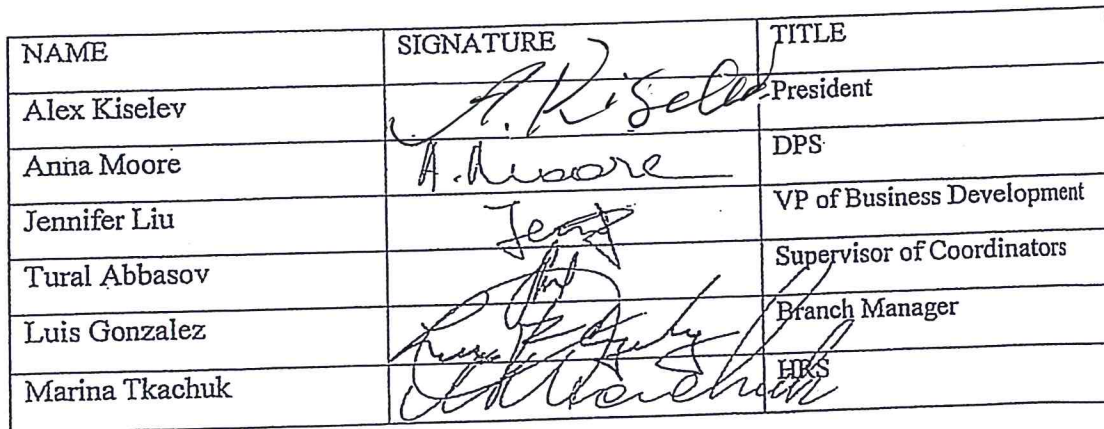 NAME SIGNATURE TITLE
Alex Kiselev A. Kiselev President
Anna Moore A. Moore DPS
Jennifer Liu VP of Business Development
Tural Abbasov Supervisor of Coordinators
Luis Gonzalez Branch Manager
Marina Tkachuk HRS